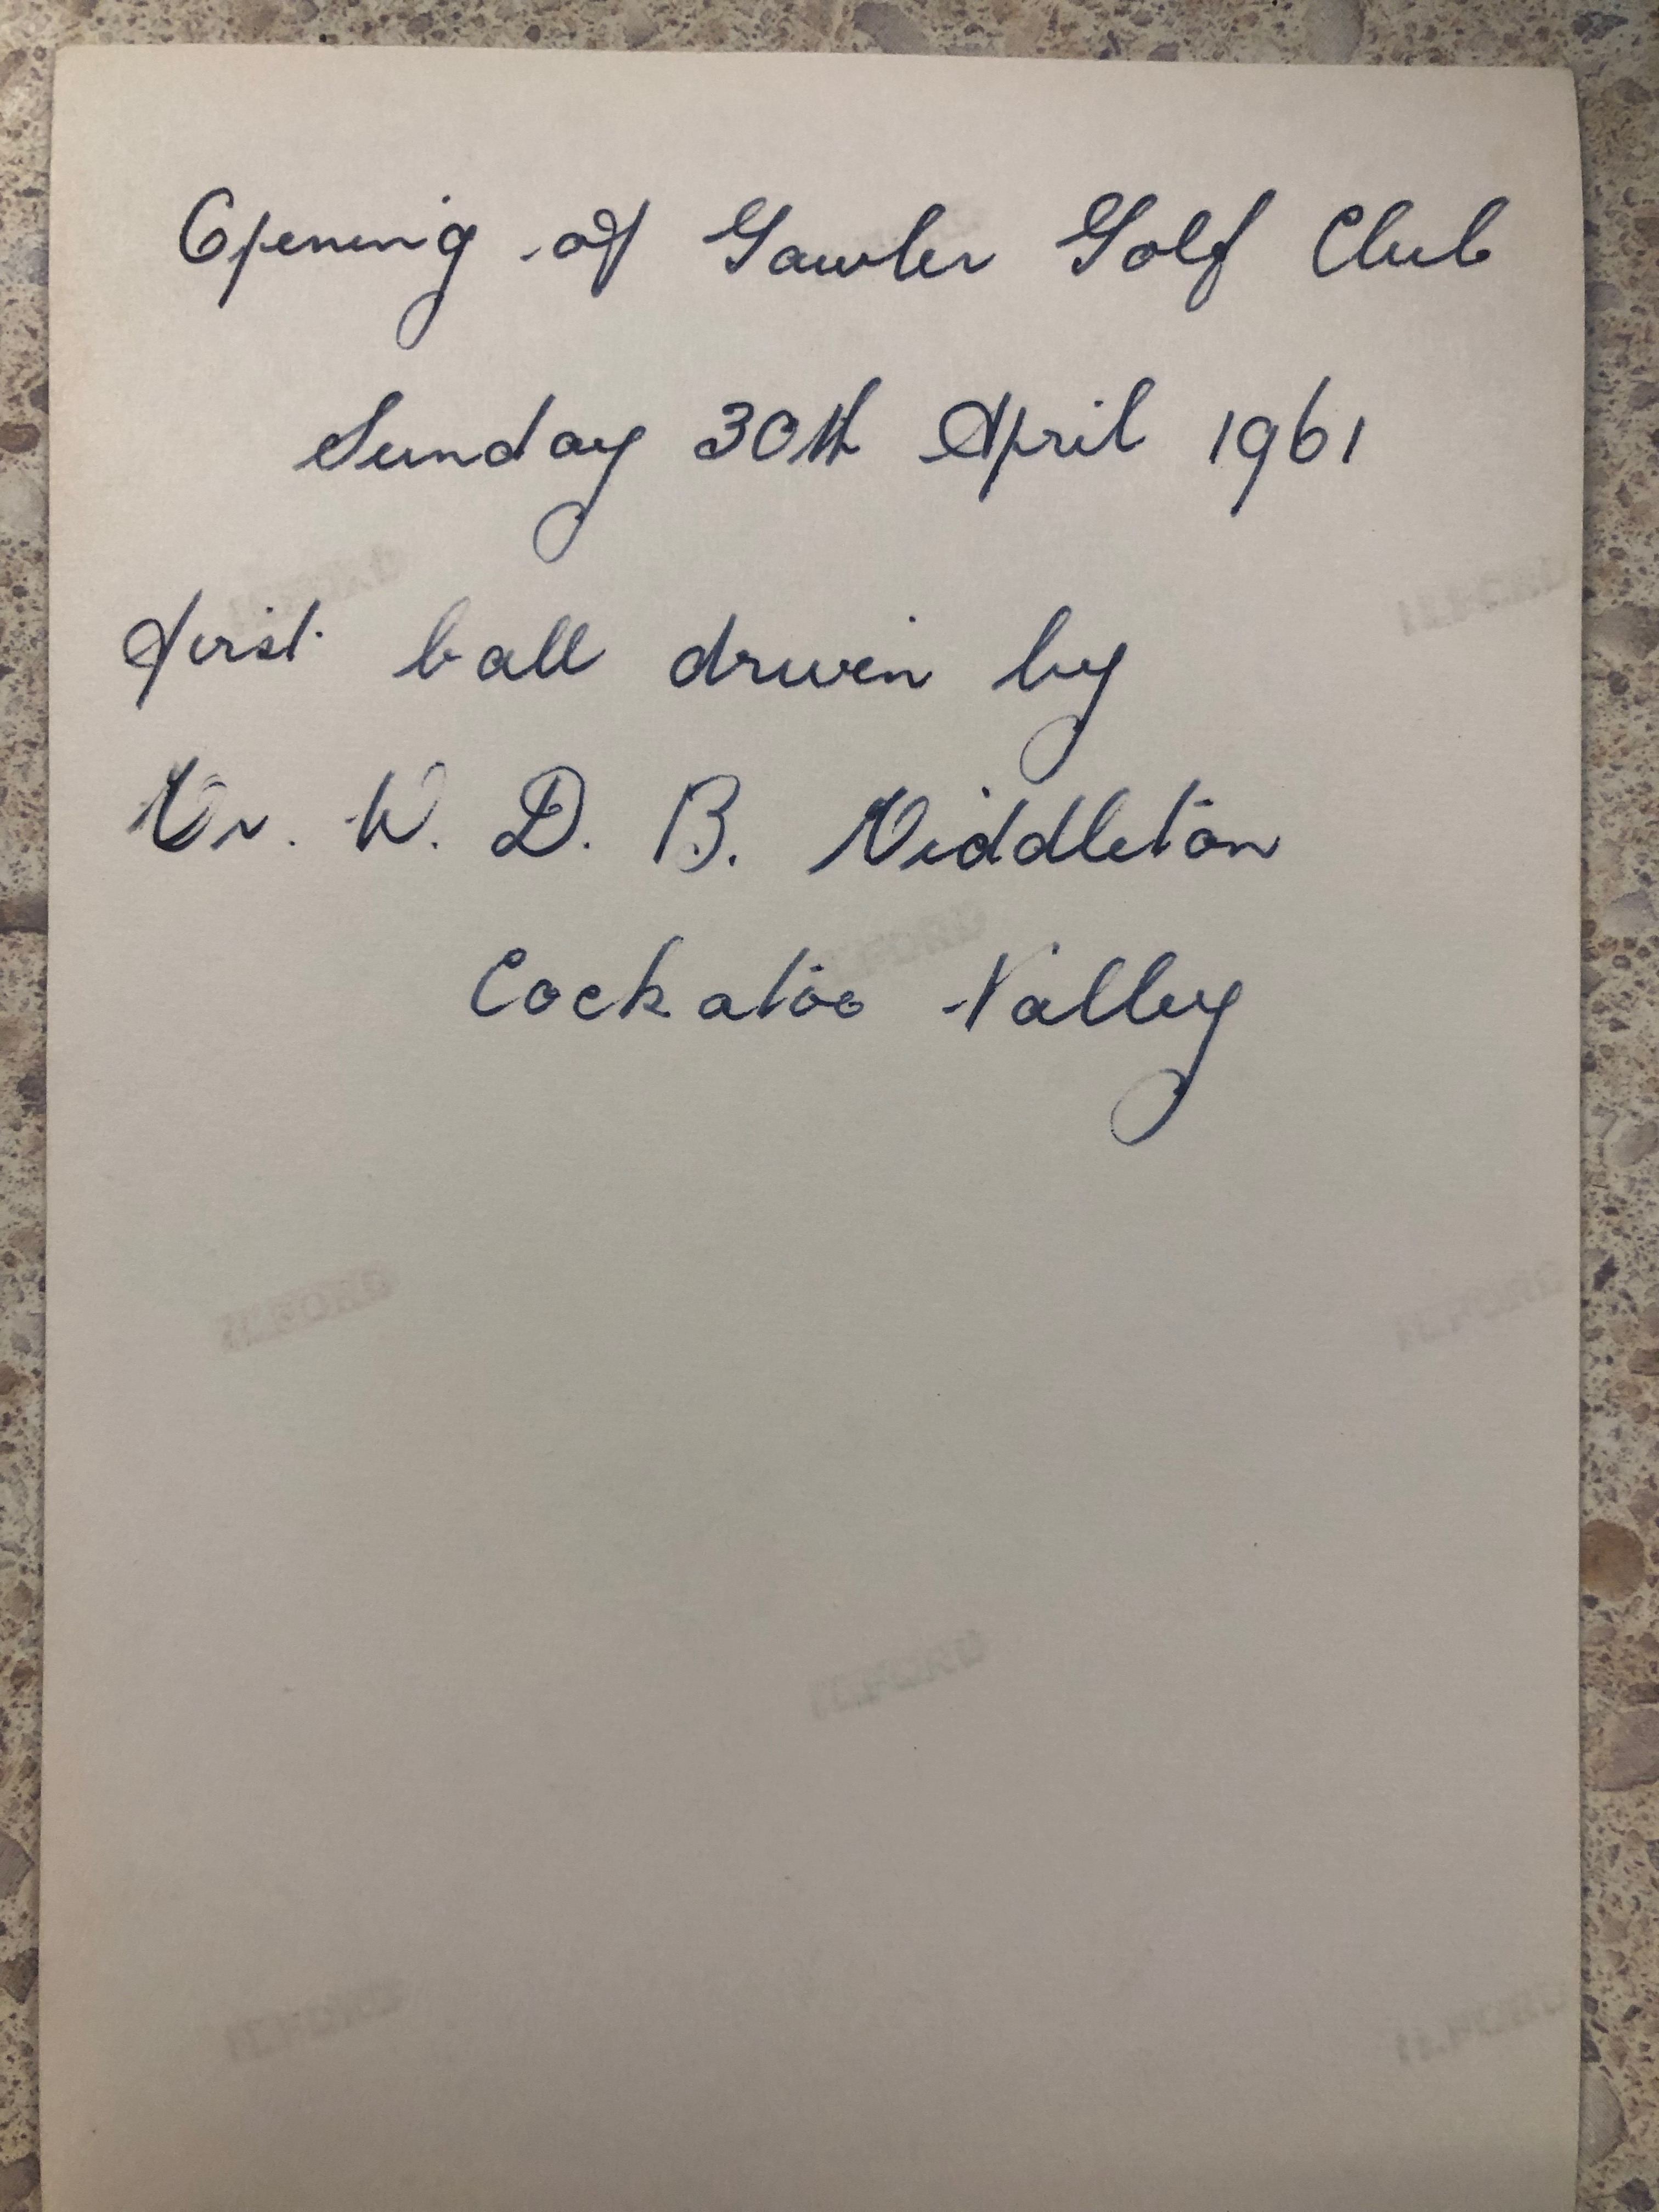 Opening of Gawler Golf Club
Sunday 30th April 1961
first ball driven by
Mr. W. D. B. Middleton
Cockatoo Valley
ILFORD
ILFORD
ILFORD
ILFORD
ILFORD
ILFORD
ILFORD
ILFORD